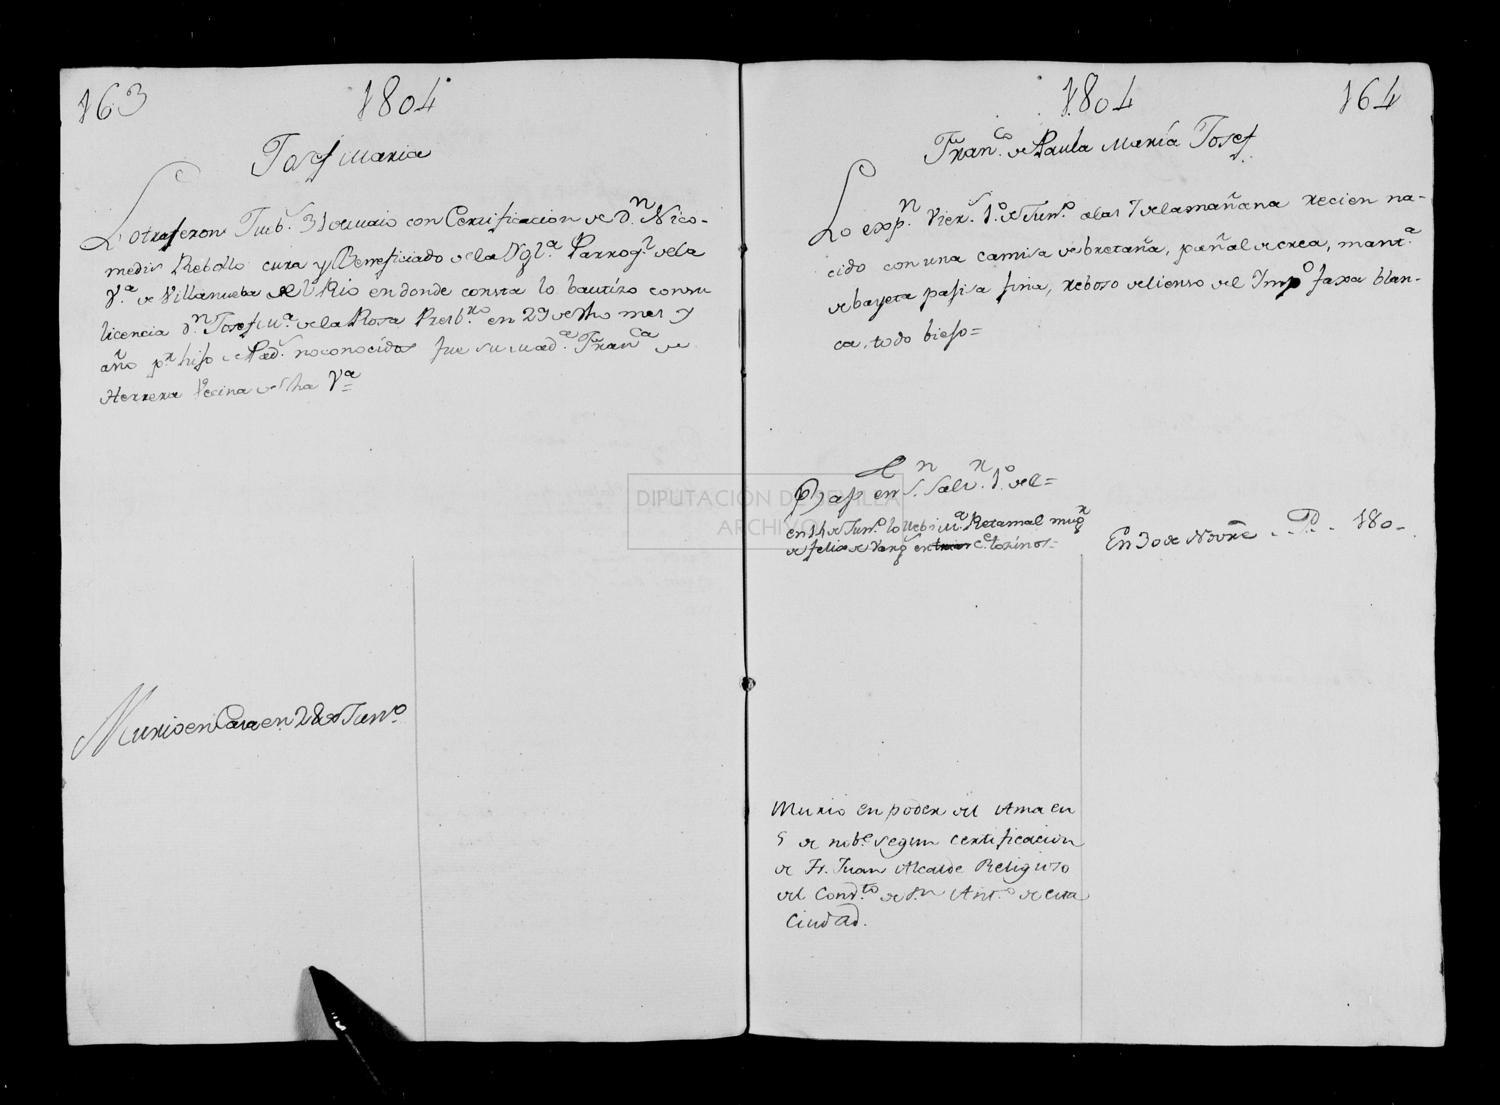 163 1804
Josef Maria
Lo trageron Jueb.s 31 de maio con Certificacion de D.n Nico-
medis Rebollo cura y Beneficiado de la Ygl.a Parroq.l de la
V.a de Villanueba del Rio en donde consta lo bautizo con su
licencia D.n Josef M.a de la Rosa Presb.ro en 29 de dho mes y
año p.r hijo de Pad.s no conocidos fue su mad.a Fran.ca de
Herrera Vecina de dha V.a
Murio en Casa en 28 de Jun.o
1804 164
Fran.co de Paula María Josef
Lo exp.n Vier.s 1.o de Jun.o a las 7 de la mañana recien na-
cido con una camisa de bretaña, pañal de crea, mant.a
de bayeta pagisa fina, reboso de lienso del Imp.o faxa blan-
ca, todo biejo=
Bap en S. Salv.r 1.o del=
en 14 de Jun.o lo llebo M.a Retamal mug.r
de felix de Varg.s en c.e torinos=
En 30 de Novre P. 180
Murio en poder del Ama en
5 de nob.e segun certificacion
de Fr. Juan Alcalde Religioso
del Conv.to de S.n Ant.o de esta
Ciudad.
DIPUTACIÓN DE SEVILLA
ARCHIVO